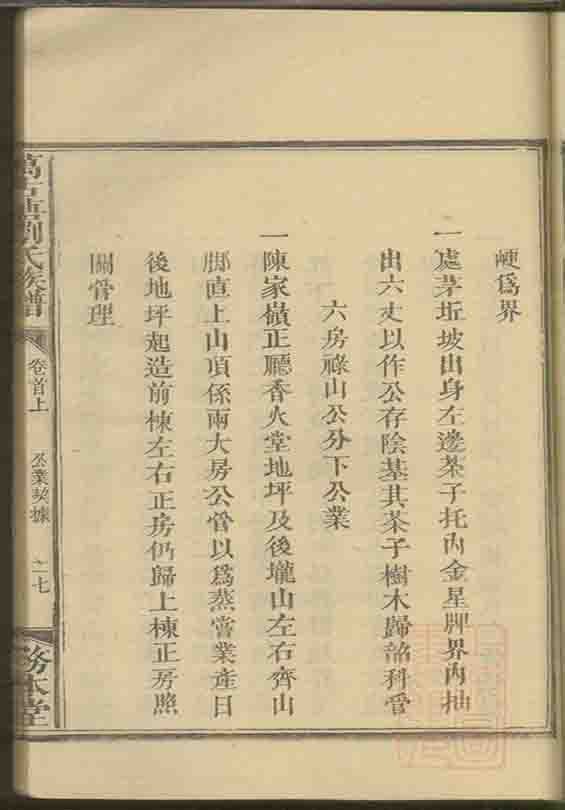 硬為界
一處茅坵坡出身左邊茶子托內金星牌界內抽
出六丈以作公存陰基其茶子樹木歸韶科管
六房祿山公分下公業
一陳家嶺正廳香火堂地坪及後壠山左右齊山
腳直上山頂係兩大房公管以為蒸嘗業產日
後地坪起造前棟左右正房仍歸上棟正房照
關管理
萬古塘劉氏族譜
卷首上
公業契據
二七
務本堂